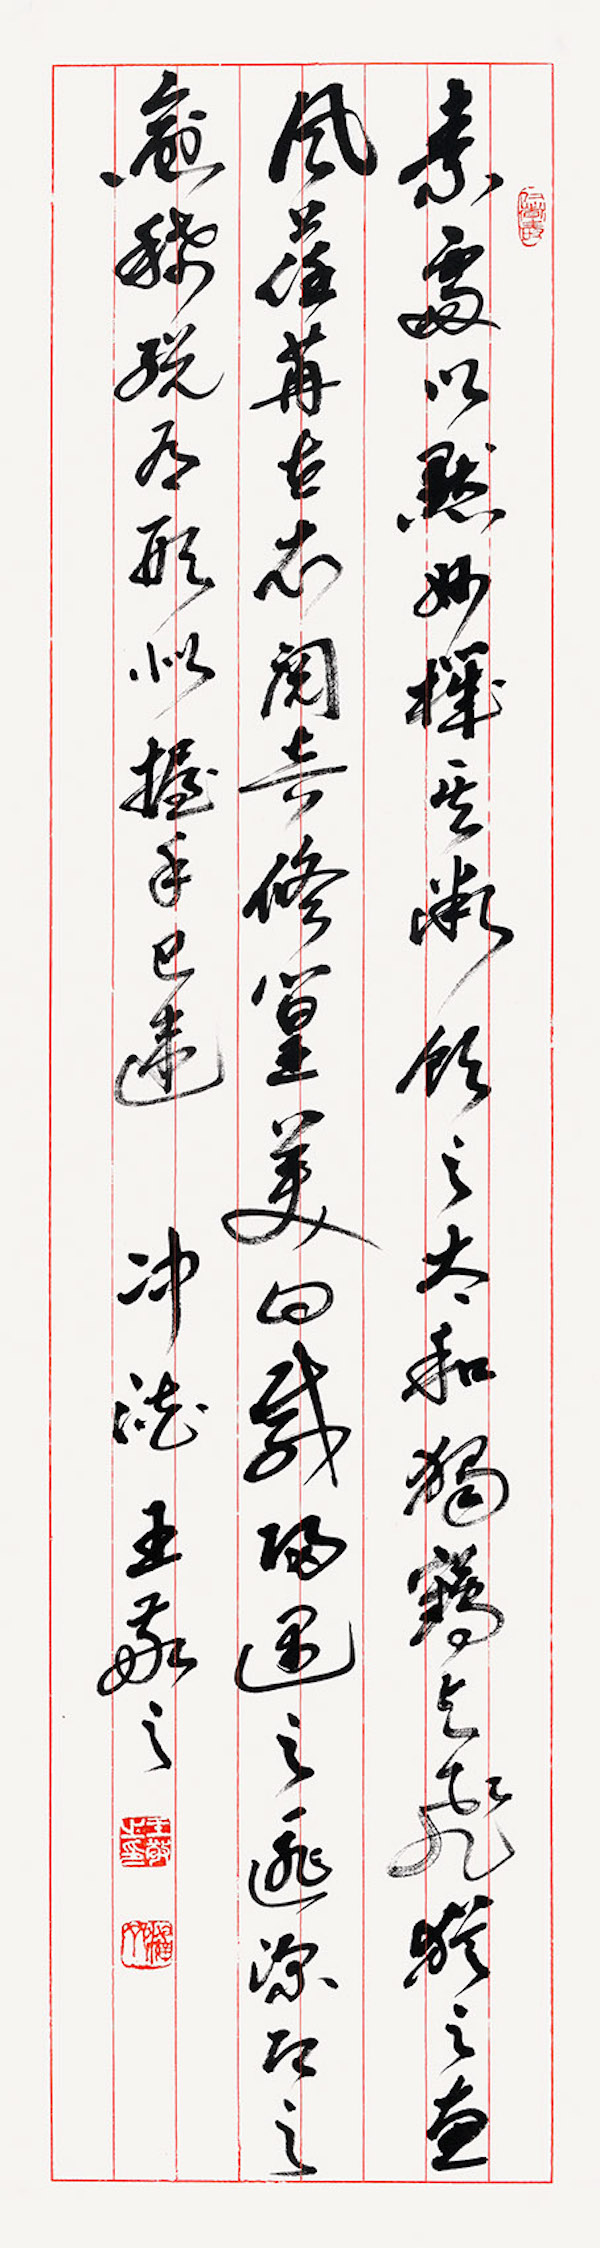 素處以默妙機其微飲之太和獨鶴与飛猶之惠
風荏苒在衣閱音修篁美曰載歸遇之匪深即之
愈稀脫有形似握手已違 冲澹 王敬之
王敬之印